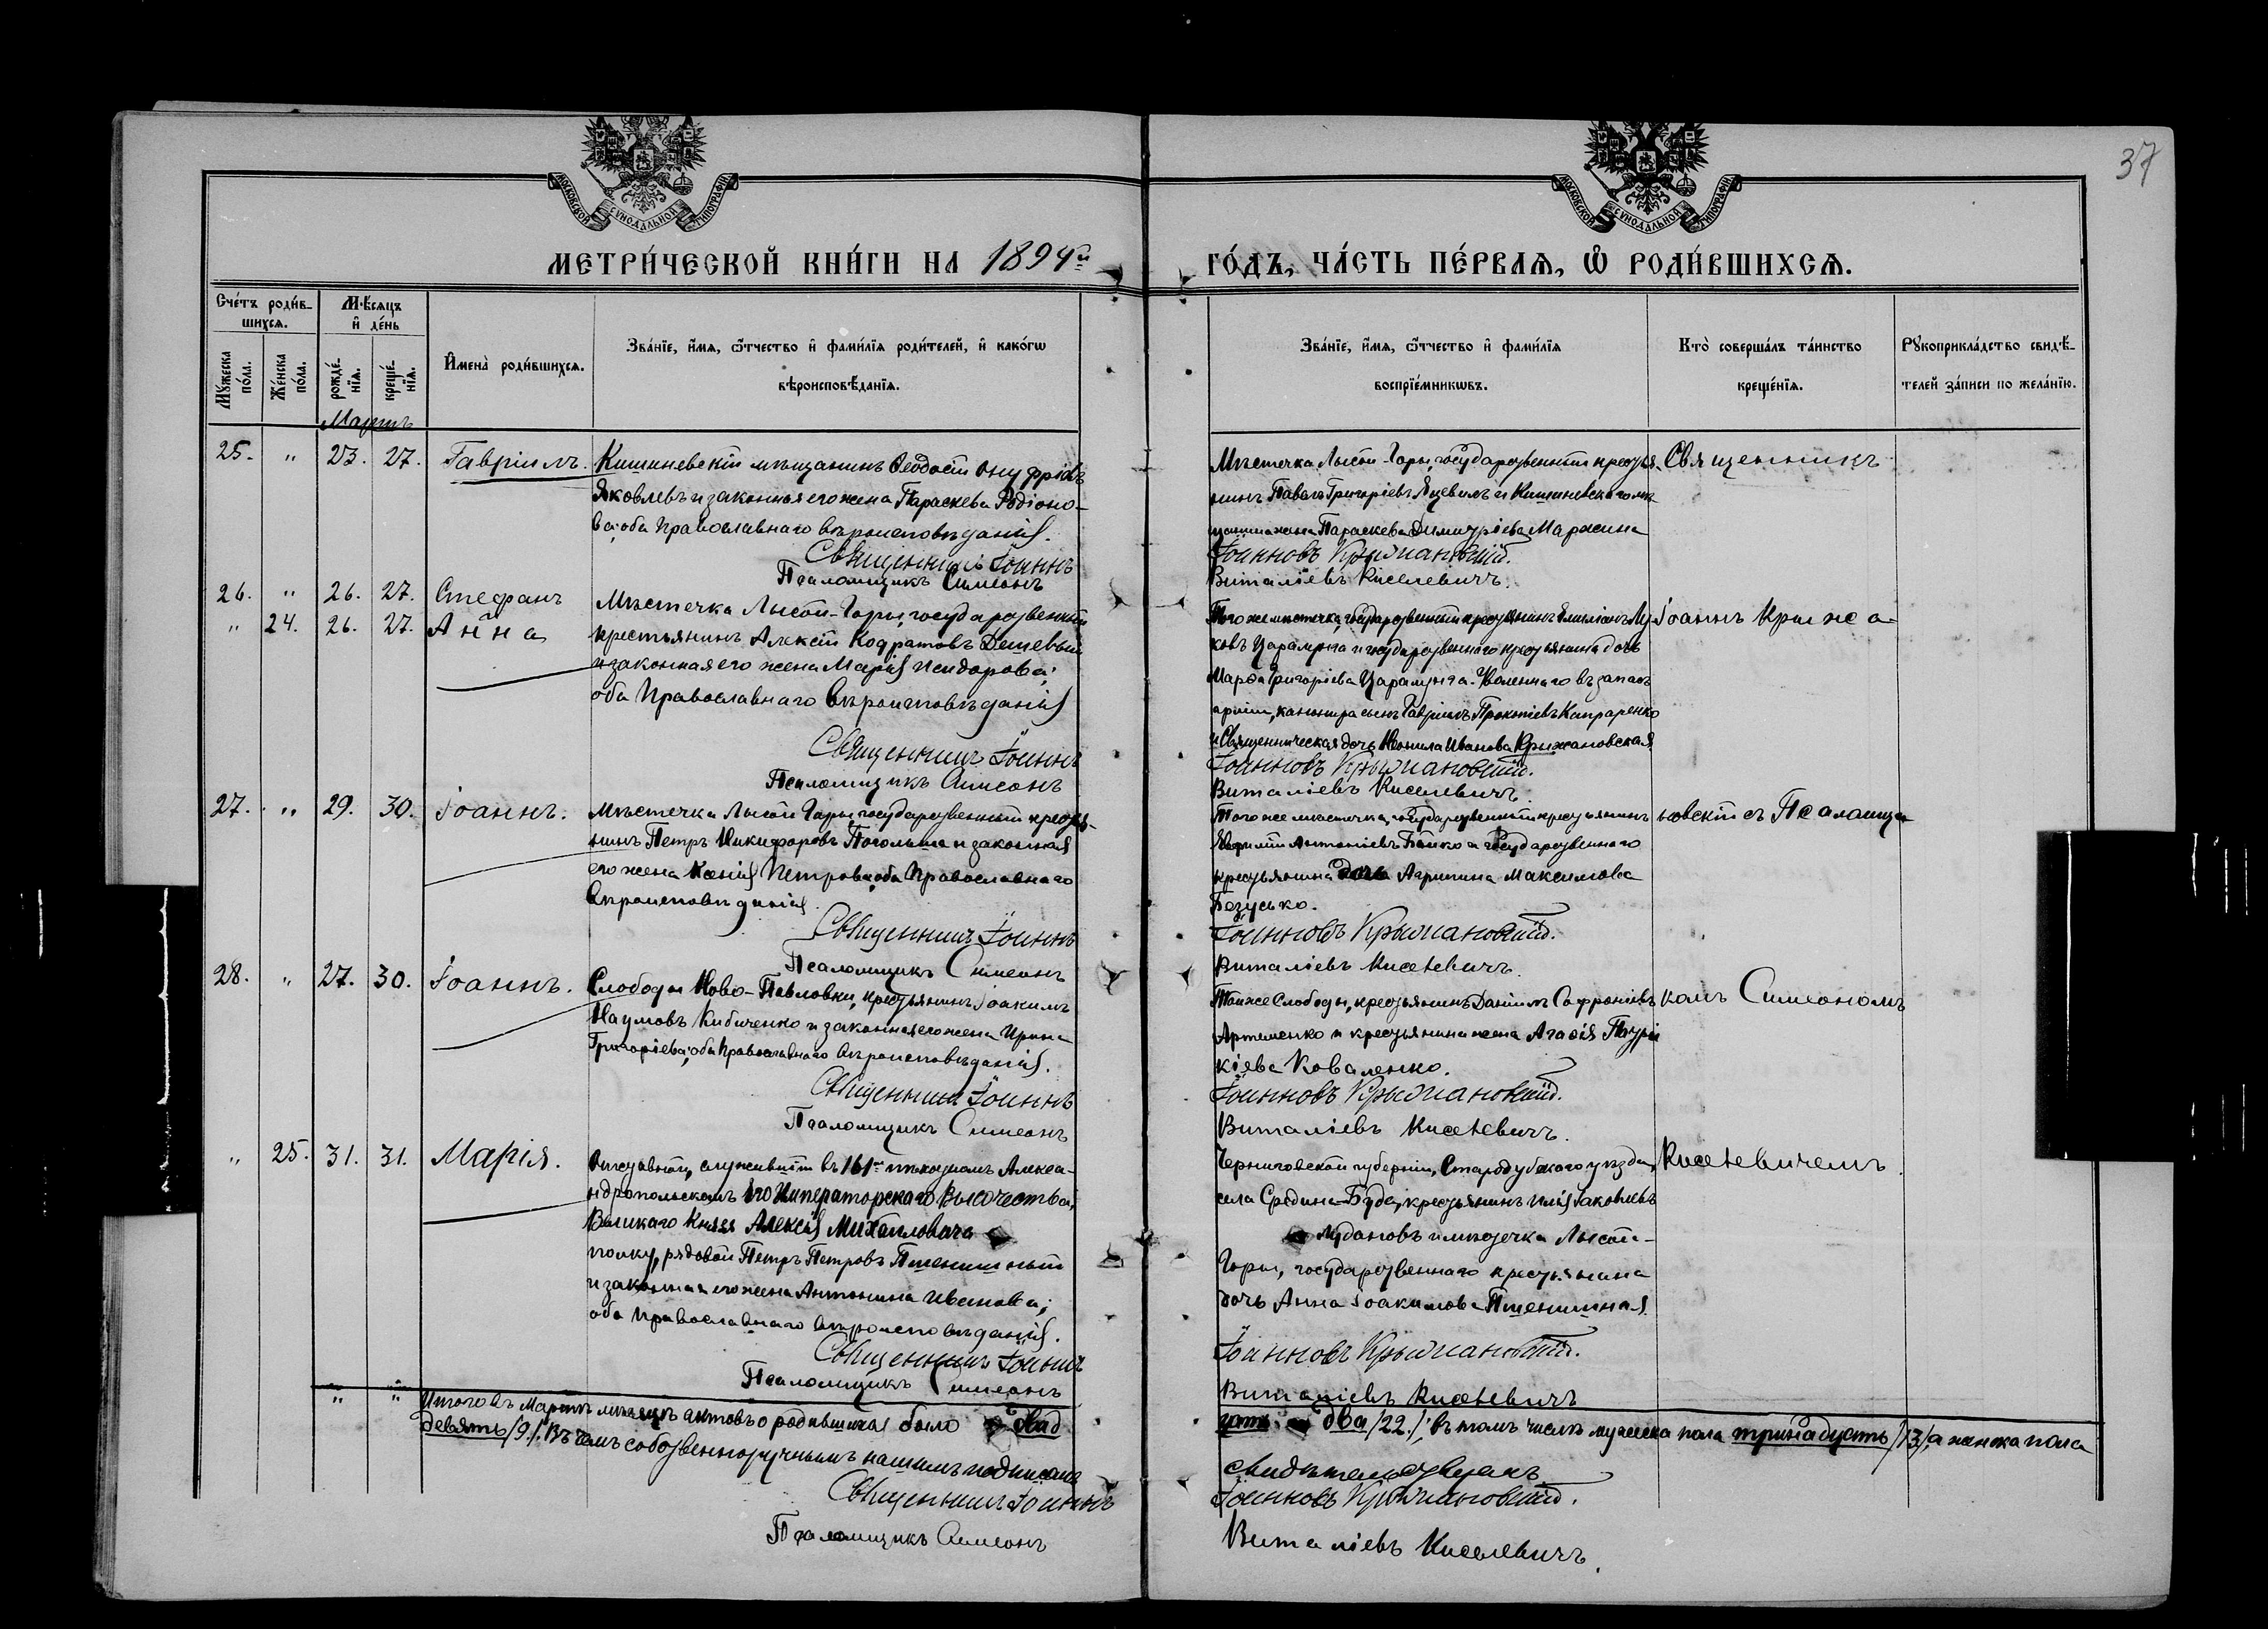 37
МОСКОВСКОЙ СУНОДАЛЬНОЙ ТИПОГРАФІИ
МОСКОВСКОЙ СУНОДАЛЬНОЙ ТИПОГРАФІИ
МЕТРИ́ЧЕСКОЙ КНИ́ГИ НА 1894й
ГО́ДЪ, ЧА́СТЬ ПЕ́РВАЯ, Ѡ РОДИ́ВШИХСЯ.
Сче́тъ роди́в-
шихся.
Му́жеска по́ла.
Же́нска по́ла.
Мѣ́сяцъ
и де́нь
рожде́нїя.
креще́нїя.
Имена̀ роди́вшихся.
Зва́нїе, и́мя, ѻ́тчество и фами́лїя роди́телей, и како́гѡ
вѣроисповѣ́данїя.
Зва́нїе, и́мя, ѻ́тчество и фами́лїя
воспрїе́мникѡвъ.
Кто̀ соверша́лъ та́инство
креще́нїя.
Рꙋкоприкла́дство свидѣ́-
телей за́писи по жела́нїю.
Мартъ
25. " 23. 27. Гавріилъ.
Кишиневскій мѣщанинъ Ѳеодосій Онуфріевъ
Яковлевъ и законная его жена Параскева Родіоно-
ва; оба Православнаго вѣроисповѣданія.
Священникъ Іоаннъ
Псаломщикъ Симеонъ
Мѣстечка Лысой-Горы, государственный крестья-
нинъ Павелъ Григоріевъ и Кишиневскаго мѣ-
щанина жена Параскева Димитріева
Іоанновъ Крыжановскій.
Виталіевъ Киселевичъ.
Священникъ
26. " 26. 27. Стефанъ
" 24. 26. 27. Анна
Мѣстечка Лысой-Горы, государственный
крестьянинъ Алексій Кодратовъ Дешевый
и законная его жена Марія Исидорова;
оба Православнаго вѣроисповѣданія
Священникъ Іоаннъ
Псаломщикъ Симеонъ
Того же мѣстечка, государственный крестьянинъ
ковъ Царалунга и государственнаго крестьянина дочь
Марѳа Григоріева Царалунга. Уволеннаго въ запасъ
арміи, канонира сынъ Гавріилъ Прокопіевъ Капраренко
и Священническая дочь Неонила Иванова Крижановская
Іоанновъ Крыжановскій.
Виталіевъ Киселевичъ.
Іоаннъ Крижа-
27. " 29. 30. Іоаннъ.
Мѣстечка Лысой Горы, государственный крестья-
нинъ Петръ Никифоровъ и законная
его жена Ксенія Петрова; оба Православнаго
вѣроисповѣданія.
Священникъ Іоаннъ
Псаломщикъ Симеонъ
Того же мѣстечка, государственный крестьянинъ
Евфимій Антоніевъ Бойко и государственнаго
крестьянина дочь Агрипина Максимова
Безусько.
Іоанновъ Крыжановскій.
Виталіевъ Киселевичъ.
новскій съ Псаломщи-
28. " 27. 30. Іоаннъ.
Слободы Ново-Павловки, крестьянинъ Іоакимъ
Наумовъ Кибиченко и законная его жена Ирина
Григоріева; оба Православнаго вѣроисповѣданія.
Священникъ Іоаннъ
Псаломщикъ Симеонъ
Той же Слободы, крестьянинъ Даніилъ Софроніевъ
Артеменко и крестьянина жена Агаѳія
кіева Коваленко.
Іоанновъ Крыжановскій.
Виталіевъ Киселевичъ.
комъ Симеономъ
" 25. 31. 31. Марія.
служившій въ 161мъ пѣхотномъ Алекса-
ндропольскомъ Его Императорскаго Высочества,
Великаго Князя Алексія Михаиловича
полку, рядовой Петръ Петровъ Пшенишный
и законная его жена Антонина Иванова;
оба Православнаго вѣроисповѣданія.
Священникъ Іоаннъ
Псаломщикъ Симеонъ
Черниговской губерніи, Стародубскаго уѣзда,
села Средина-Буда, крестьянинъ Илія Іаковлевъ
и мѣстечка Лысой-
Горы, государственнаго крестьянина
дочь Анна Іоакимова Пшенишная.
Іоанновъ Крыжановскій.
Виталіевъ Киселевичъ
Киселевичемъ.
" " Итого въ Мартѣ мѣсяцѣ актовъ о родившихся было двад-
цать два /22./; въ томъ числѣ мужеска пола тринадцать /13/, а женска пола
девять /9./. Въ чемъ собственноручнымъ нашимъ подписомъ
свидѣтельствуемъ
Священникъ Іоаннъ
Іоанновъ Крыжановскій.
Псаломщикъ Симеонъ
Виталіевъ Киселевичъ.